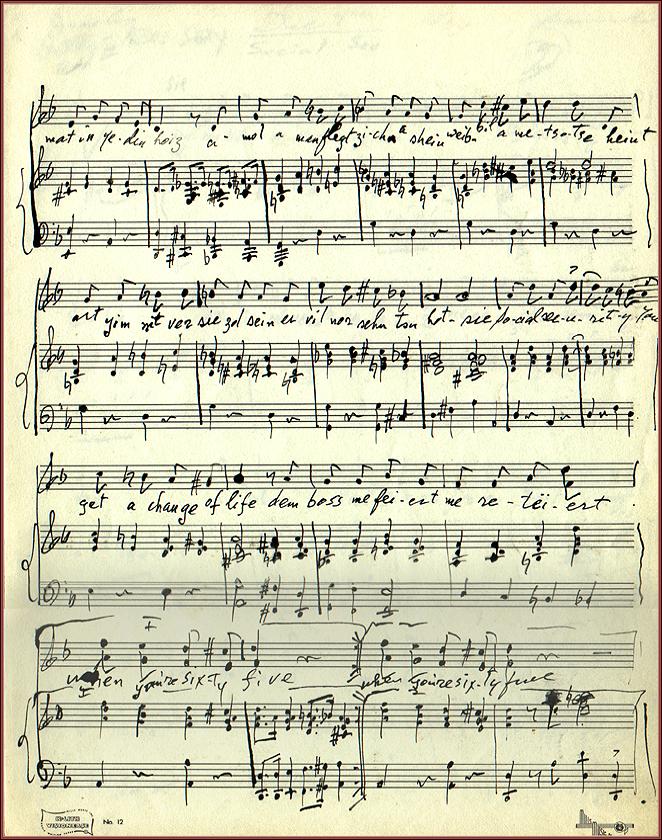 Social Sec
mat in ye-din hoiz a-mol a men flegt zi-cha a shein weib bil a me-tsa-tse heint
art yim nit ver sie zol sein er vil nor sehn tsu hot-sie so-cial se-cu-rit-y You
get a change of life dem boss me fei-ert me re-tei-ert.
I
when you're six-ty five when you're six-ty five
No. 12